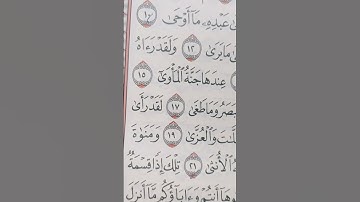 عَبْدِهِۦ مَآ أَوْحَىٰ ١٠
مَا يَرَىٰ ١٢ وَلَقَدْ رَءَاهُ
عِندَهَا جَنَّةُ ٱلْمَأْوَىٰٓ ١٥
وَمَا طَغَىٰ ١٧ لَقَدْ رَأَىٰ
وَٱلْعُزَّىٰ ١٩ وَمَنَوٰةَ
ٱلْأُنثَىٰ ٢١ تِلْكَ إِذًا قِسْمَةٌ
أَنتُمْ وَءَابَآؤُكُم مَّآ أَنزَلَ